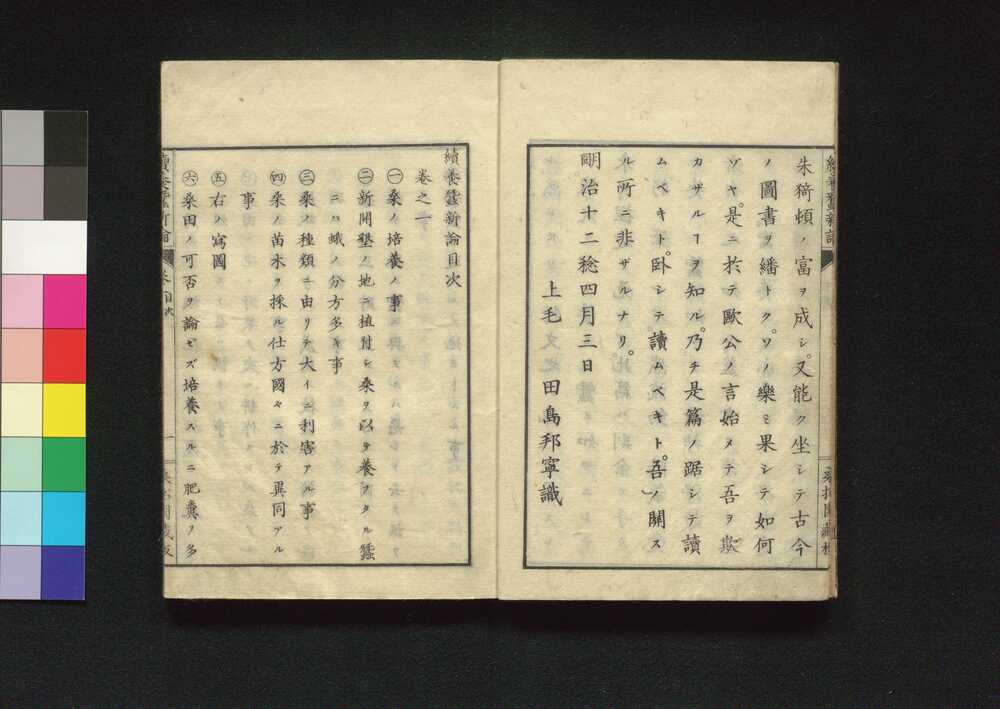 朱猗頓ノ富ヲ成シ。又能ク坐シテ古今
ノ圖書ヲ繙トク。ソノ樂ミ果シテ如何
ソヤ。是ニ於テ歐公ノ言始メテ吾ヲ欺
カザルヿヲ知ル。乃チ是篇ノ踞シテ讀
ムベキト。臥シテ讀ムベキト。吾ノ關ス
ル所ニ非ザルナリ。
明治十二稔四月三日
上毛田島邦寧識
續養蠶新論目次
卷之一
㊀桑ノ培養ノ事
㊁新開墾ノ地ニ植附シ桑ヲ以テ養ヲタル蠶
ニハ蛾ノ分方多キ事
㊂桑ノ種類ニ由リテ大イニ利害アル事
㊃桑ノ苗木ヲ採ル仕方國々ニ於テ異同アル
事
㊄右ノ寫圖
㊅桑田ノ可否ヲ論ゼズ培養スルニ肥糞ノ多